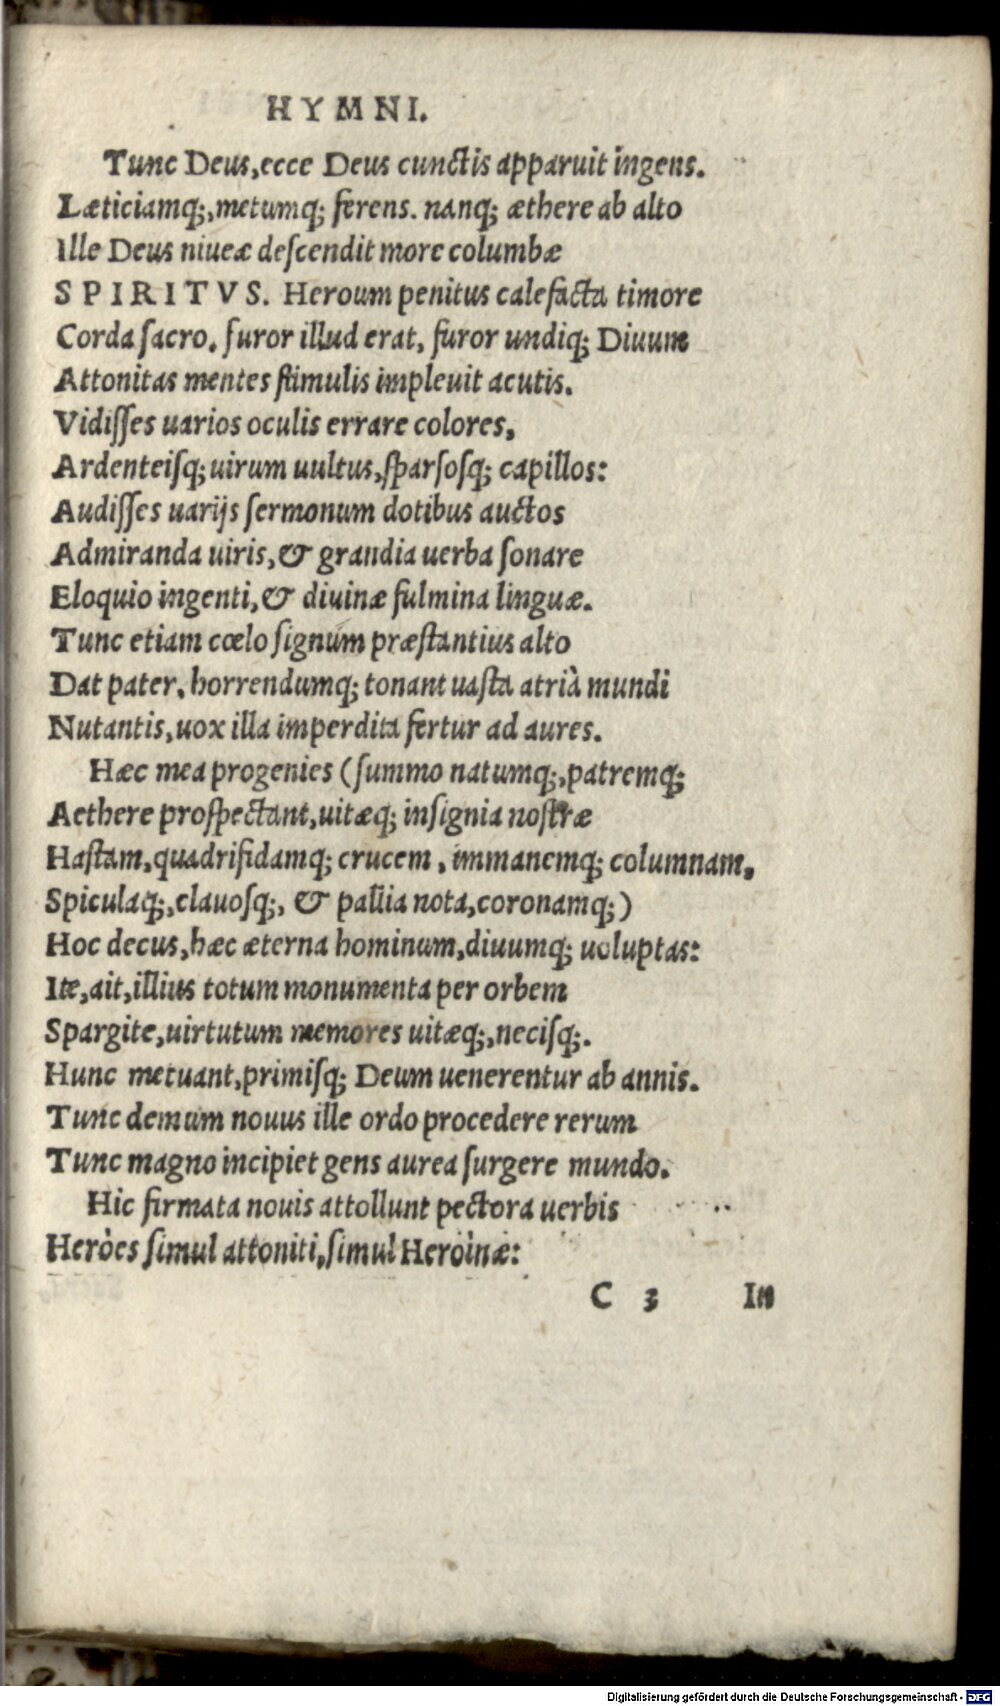 HYMNI.
Tunc Deus, ecce Deus cunctis apparuit ingens.
Læticiamq;, metumq; ferens. nanq; æthere ab alto
Ille Deus niueæ deſcendit more columbæ
SPIRITVS. Heroum penitus calefacta timore
Corda ſacro. furor illud erat, furor undiq; Diuum
Attonitas mentes ſtimulis impleuit acutis.
Vidiſſes uarios oculis errare colores,
Ardenteiſq; uirum uultus, ſparſoſq; capillos:
Audiſſes uarijs ſermonum dotibus auctos
Admiranda uiris, & grandia uerba ſonare
Eloquio ingenti, & diuinæ fulmina linguæ.
Tunc etiam cœlo ſignum præſtantius alto
Dat pater, horrendumq; tonant uaſta atrià mundi
Nutantis, uox illa imperdita fertur ad aures.
Hæc mea progenies (ſummo natumq;, patremq;
Aethere proſpectant, uitæq; inſignia noſtræ
Haſtam, quadrifidamq; crucem, immanemq; columnam,
Spiculaq;, clauoſq;, & pallia nota, coronamq;)
Hoc decus, hæc æterna hominum, diuumq; uoluptas:
Ite, ait, illius totum monumenta per orbem
Spargite, uirtutum memores uitæq;, neciſq;.
Hunc metuant, primiſq; Deum uenerentur ab annis.
Tunc demum nouus ille ordo procedere rerum
Tunc magno incipiet gens aurea ſurgere mundo.
Hic firmata nouis attollunt pectora uerbis
Heròes ſimul attoniti, ſimul Heroìnæ:
C 3 In
Digitalisierung gefördert durch die Deutsche Forschungsgemeinschaft - DFG